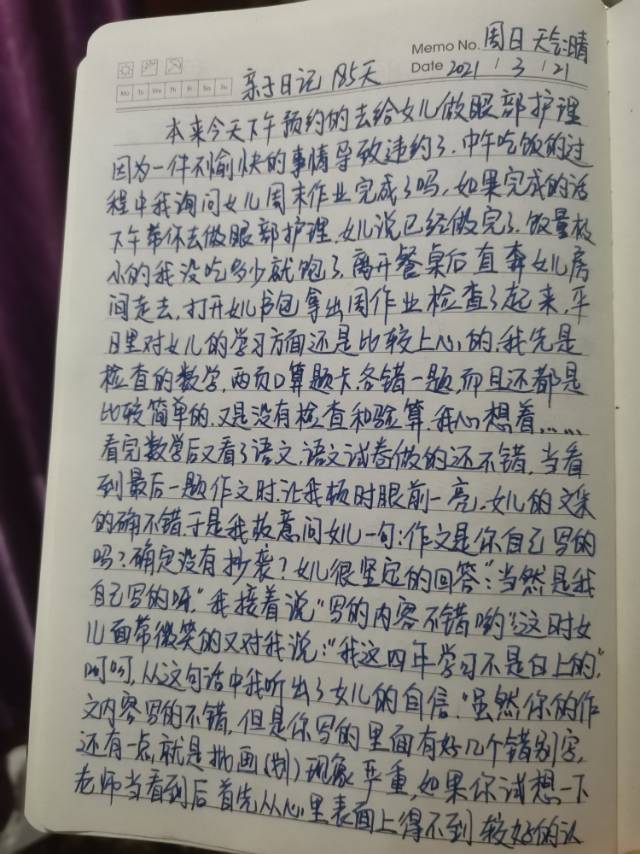 Memo No. 周日 天气:晴
Mo Tu We Th Fr Sa Su
亲子日记 185天 Date 2021 / 3 / 21
本来今天下午预约的去给女儿做眼部护理
因为一件不愉快的事情导致违约了.中午吃饭的过
程中我询问女儿周末作业完成了吗,如果完成的话
下午带你去做眼部护理.女儿说已经做完了.饭量极
小的我没吃多少就饱了.离开餐桌后直奔女儿房
间走去,打开女儿书包拿出周作业检查了起来,平
日里对女儿的学习方面还是比较上心的.我先是
检查的数学.两页口算题卡各错一题,而且还都是
比较简单的.又是没有检查和验算.我心想着......
看完数学后又看了语文.语文试卷做的还不错.当看
到最后一题作文时.让我顿时眼前一亮.女儿的文采
的确不错.于是我故意问女儿一句:作文是你自己写的
吗?确定没有抄袭?女儿很坚定的回答:"当然是我
自己写的呀."我接着说"写的内容不错哟"这时女
儿面带微笑的又对我说:"我这四年学习不是白上的."
呵呵,从这句话中我听出了女儿的自信."虽然你的作
文内容写的不错,但是你写的里面有好几个错别字,
还有一点就是批画(划)现象严重,如果你试想一下
老师当看到后首先从心里表面上得不到较好的认